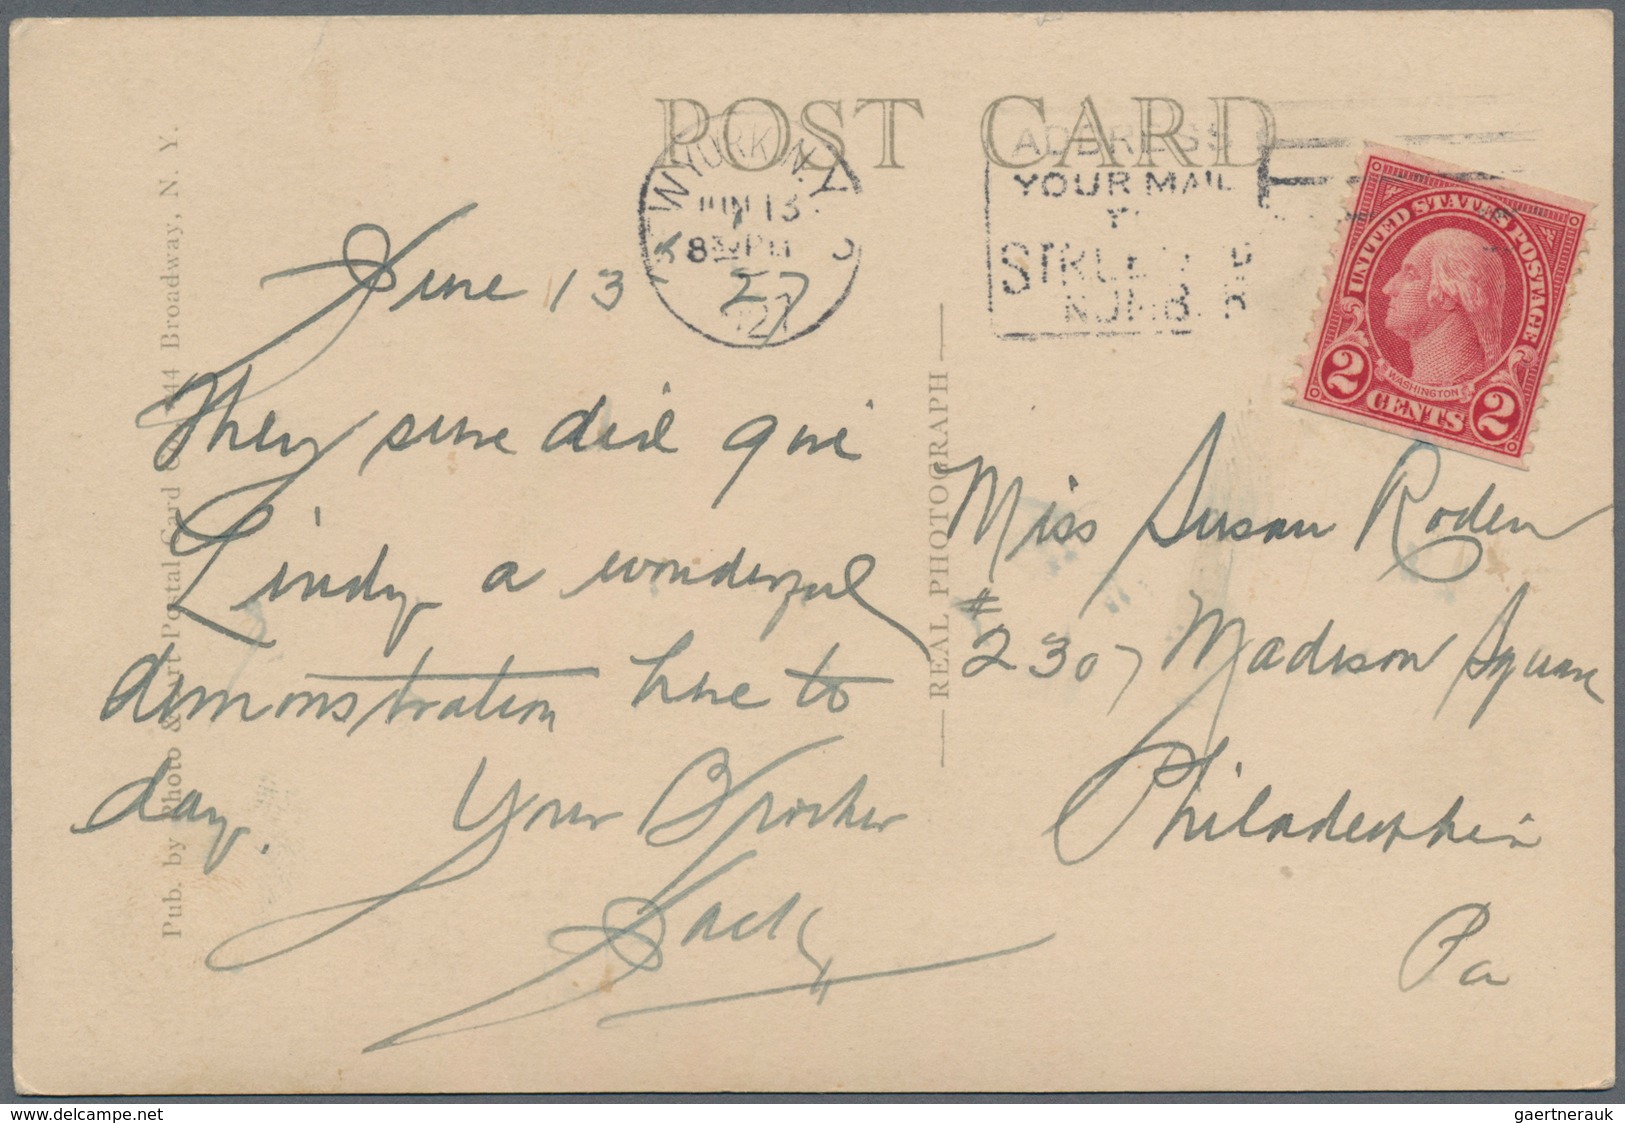 POST CARD
W YORK N.Y.
JUN 13
8 30 PM
1927
ADDRESS
YOUR MAIL
TO
STREET AND
NUMBER
UNITED STATES POSTAGE
WASHINGTON
2 CENTS 2
June 13 27
They sure did give
Lindy a wonderful
demonstration here to
day. Your Brother
Jack
Miss Susan Roden
# 2307 Madison Square
Philadelphia
Pa
REAL PHOTOGRAPH
Pub. by Photo & Art Postal Card Co. 444 Broadway, N. Y.
www.delcampe.net
gaertnerauk